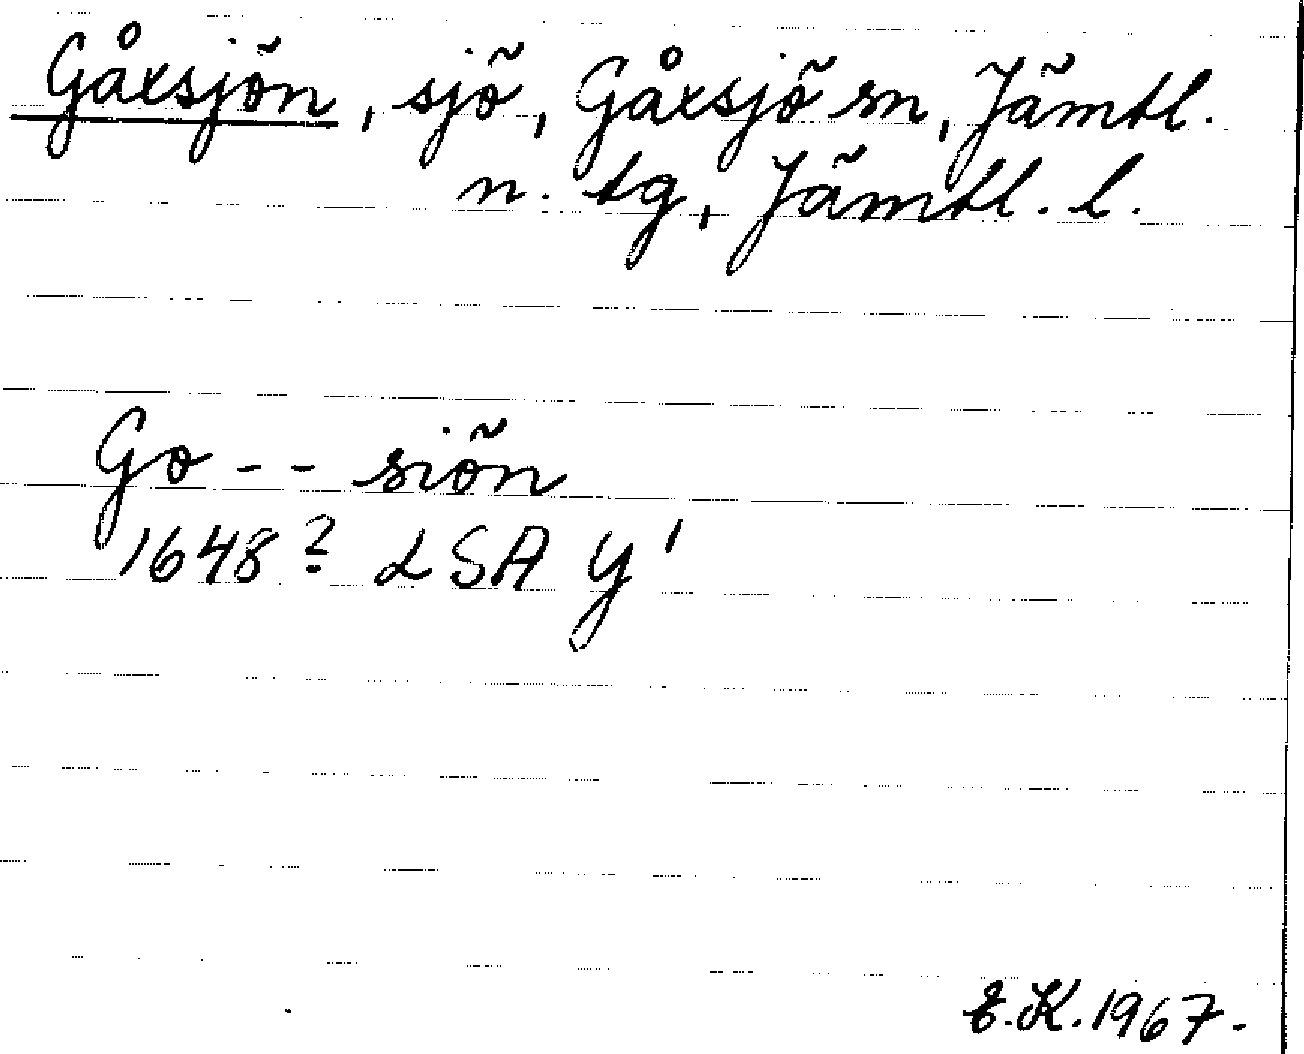 Gåxsjön, sjö, Gåxsjö sn, Jämtl.
n. tg, Jämtl. l.
Go - - siön
1648? LSA Y'
E.K. 1967.